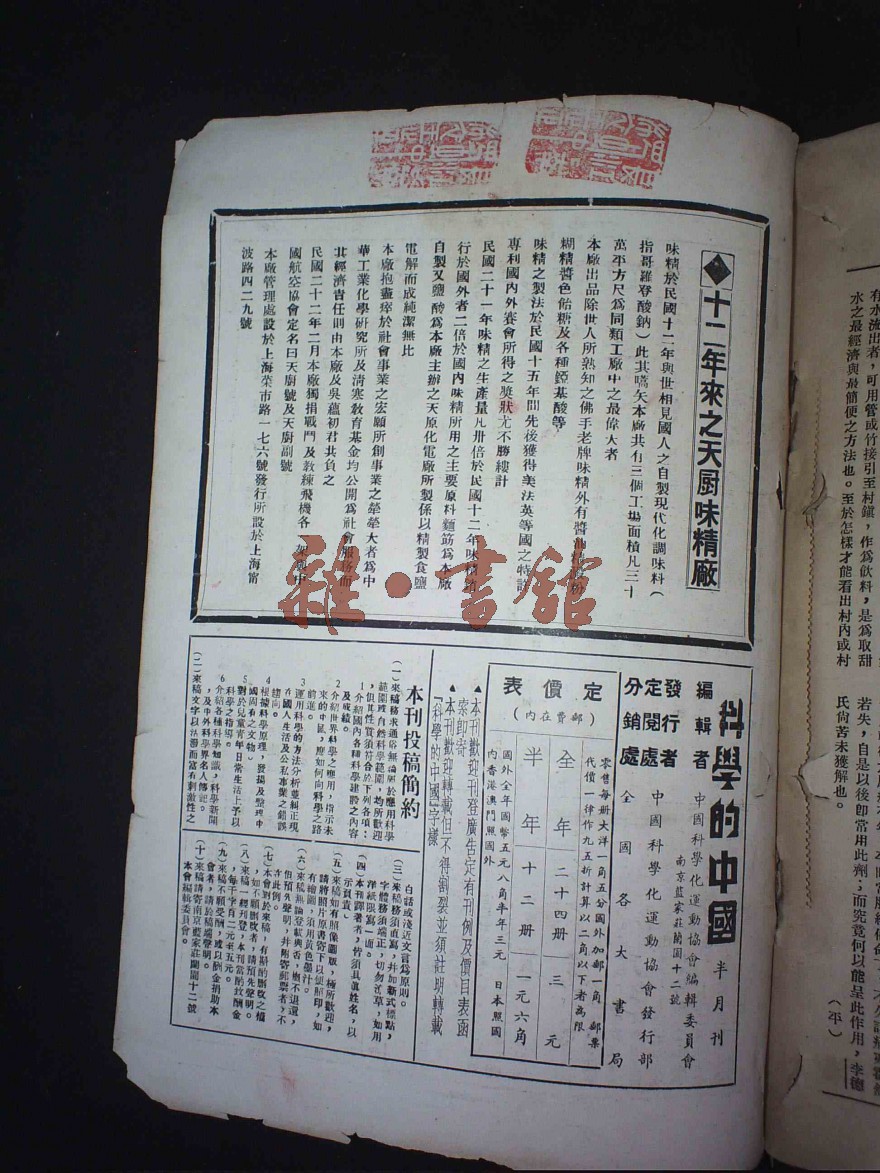 十二年來之天厨味精廠
味精於民國十二年與世相見國人之自製現代化調味料(
指哥羅登酸鈉)此其嚆矢本廠共有三個工場面積凡三十
萬平方尺爲同類工廠中之最偉大者
本廠出品除世人所熟知之佛手老牌味精外有醬油精澱粉
糊精醬色飴糖及各種錏基酸等
味精之製法於民國十五年間先後獲得美法英等國之特許
專利國內外賽會所得之獎狀尤不勝縷計
民國二十一年味精之生產量凡卅倍於民國十二年味精銷
行於國外者二倍於國內味精所用之主要原料麵筋爲本廠
自製又鹽酸爲本廠主辦之天原化電廠所製係以精製食鹽
電解而成純潔無比
本廠抱盡瘁於社會事業之宏願所創事業之犖犖大者爲中
華工業化學研究所及清寒敎育基金均公開爲社會服務而
其經濟責任則由本廠及吳蘊初君共負之
民國二十二年二月本廠獨捐戰鬥及敎練飛機各一架與中
國航空協會定名曰天廚號及天廚副號
本廠管理處設於上海菜市路一七六號發行所設於上海甯
波路四二九號
科學的中國 半月刊
編輯者 中國科學化運動協會編輯委員會
南京藍家莊蘭園十二號
發行者
定閱處 中國科學化運動協會發行部
分銷處 全國各大書局
定價表
(郵費在內)
零售每册大洋一角五分國外加郵一角 郵票
代價一律作九五折計算以二角以下者爲限
全年 二十四册 三元
半年 十二册 一元六角
國外全年國幣五元八角半年三元 日本照國
內香港澳門照國外
▲本刊歡迎刊登廣告定有刊例及價目表函
索即寄
▲本刊歡迎轉載但不得割裂並須註明轉載
『科學的中國』字樣
本刊投稿簡約
(一)來稿務求通俗無論屬於應用科學
範圍或自然科學範圍,均所歡迎
,但其性質須符合於下列各項:
1介紹國內各種科學建設之內容
及成績。
2介紹世界科學之應用,指示未
來的中國,應如何向科學之路
前進。
3運用科學的方法分析並糾正現
在國人生活及公私事業之錯誤
趨向。
4根據科學原理,發揚及整理中
國固有之文物。
5對於兒童青年日常生活上予以
科學之指導。
6介紹各種科學知識,科學新聞
,及中外科學界名人傳記。
(二)來稿文字以活潑而富有刺激性之
白話或淺近文言爲原則。
(三)來稿務須直寫,并加新式標點,
字體務須端正,切勿潦草,如用
洋紙限寫一面。
(四)本刊譯著者,皆須具眞姓名,以
示負責。
(五)來稿如有照像圖版,極所歡迎,
請將照片原書寄下以便照印,如
有繪圖,須用黃色墨汁。
(六)來稿無論登載與否,槪不退還,
但預先聲明,并附寄郵票者,不
在此例。
(七)本會對於來稿,有斟酌刪改之權
,如不願刪改者,請預先聲明。
(八)來稿一經刊登,本刊當酌致酬金
,每千字自二元至五元。
(九)來稿不願受酬,或以酬金捐助本
會者,請於稿端聲明。
(十)來稿請寄南京藍家莊蘭園十二號
本會編輯委員會。
有水流出者,可用管或竹接引至村鎭,作爲飲料,是爲取甜
水之最經濟與最簡便之方法也。至於怎樣才能看出村內或村
若失,自是以後即常用此劑;而究竟何以能呈此作用,李德
氏尙苦未獲解也。
(平)
雜·書館